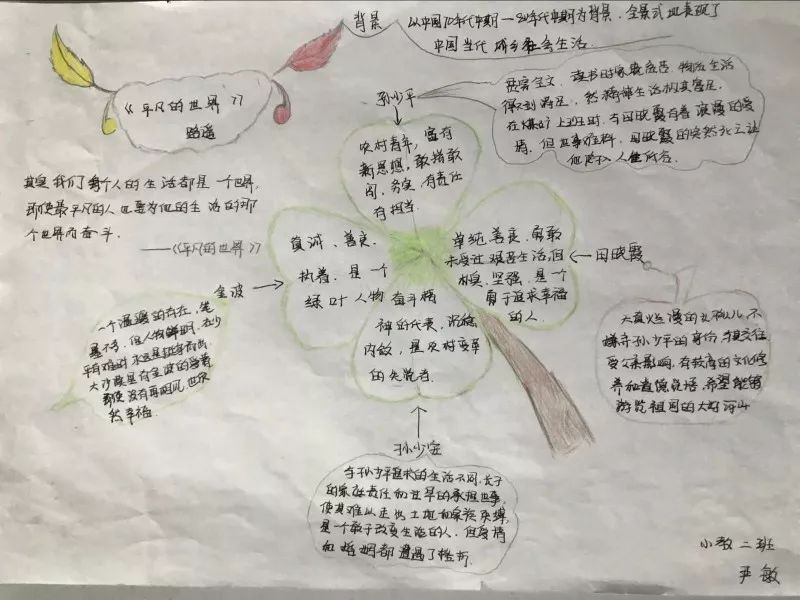 《平凡的世界》
路遥
背景
从中国70年代中期—80年代中期为背景,全景式地表现了
中国当代城乡社会生活.
其实我们每个人的生活都是一个世界,
即使最平凡的人也要为他的生活的那
个世界而奋斗.
——《平凡的世界》
孙少平
贯穿全文,读书时家境
物质生活
得到满足,然
精神生活极其富足,
在煤矿上班时,与田晓霞有着浪漫的爱
情,但世事难料,田晓霞的突然死亡让
他陷入人生低谷.
农村青年,富有
新思想,敢拼敢
闯,务实,有责任
有担当.
真诚、善良.
执着.是一个
绿叶人物
单纯,善良,勇敢
未受过艰苦生活,但
坚强.是一个
勇于追求幸福
的人.
奋斗精
神的代表,沉稳
内敛,是农村变革
的先驱者.
金波
一个温暖的存在,笔
墨不多,但人物鲜明,在少
平有难时永远是挺身而出.
即使没有再相见,也依
然幸福.
田晓霞
天真烂漫的女孩儿,不
嫌弃孙少平的身份与其交往,
受父亲影响,有较高的文化修
养和道德品质,希望能够
游览祖国的大好河山
孙少安
与孙少平追求的生活不同,长子
的家庭责任和过早的承担世事,
使其难以走出土地和家族束缚,
是一个敢于改变生活的人,但爱情
和婚姻都遭遇了挫折.
小教二班
尹敏